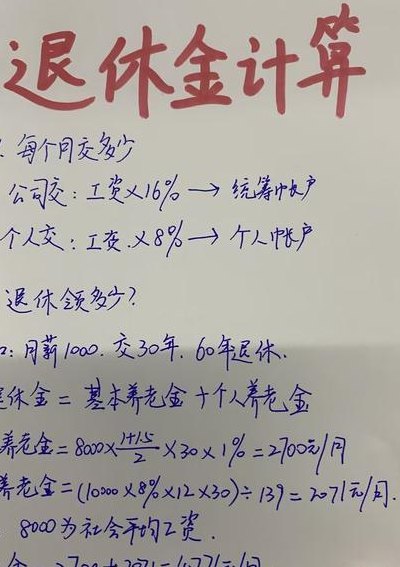 退休金计算
每个月交多少
公司交:工资×16% → 统筹帐户
个人交:工资.×8% → 个人帐户
退休领多少?
:月薪1000.交30年.60年退休.
休金=基本养老金+个人养老金
养老金=8000×(1+1.5)/2×30×1%=2700元/月
养老金=(10000×8%×12×30)÷139=2071元/月.
8000为社会平均工资.
金=2700+2071=4771元/月